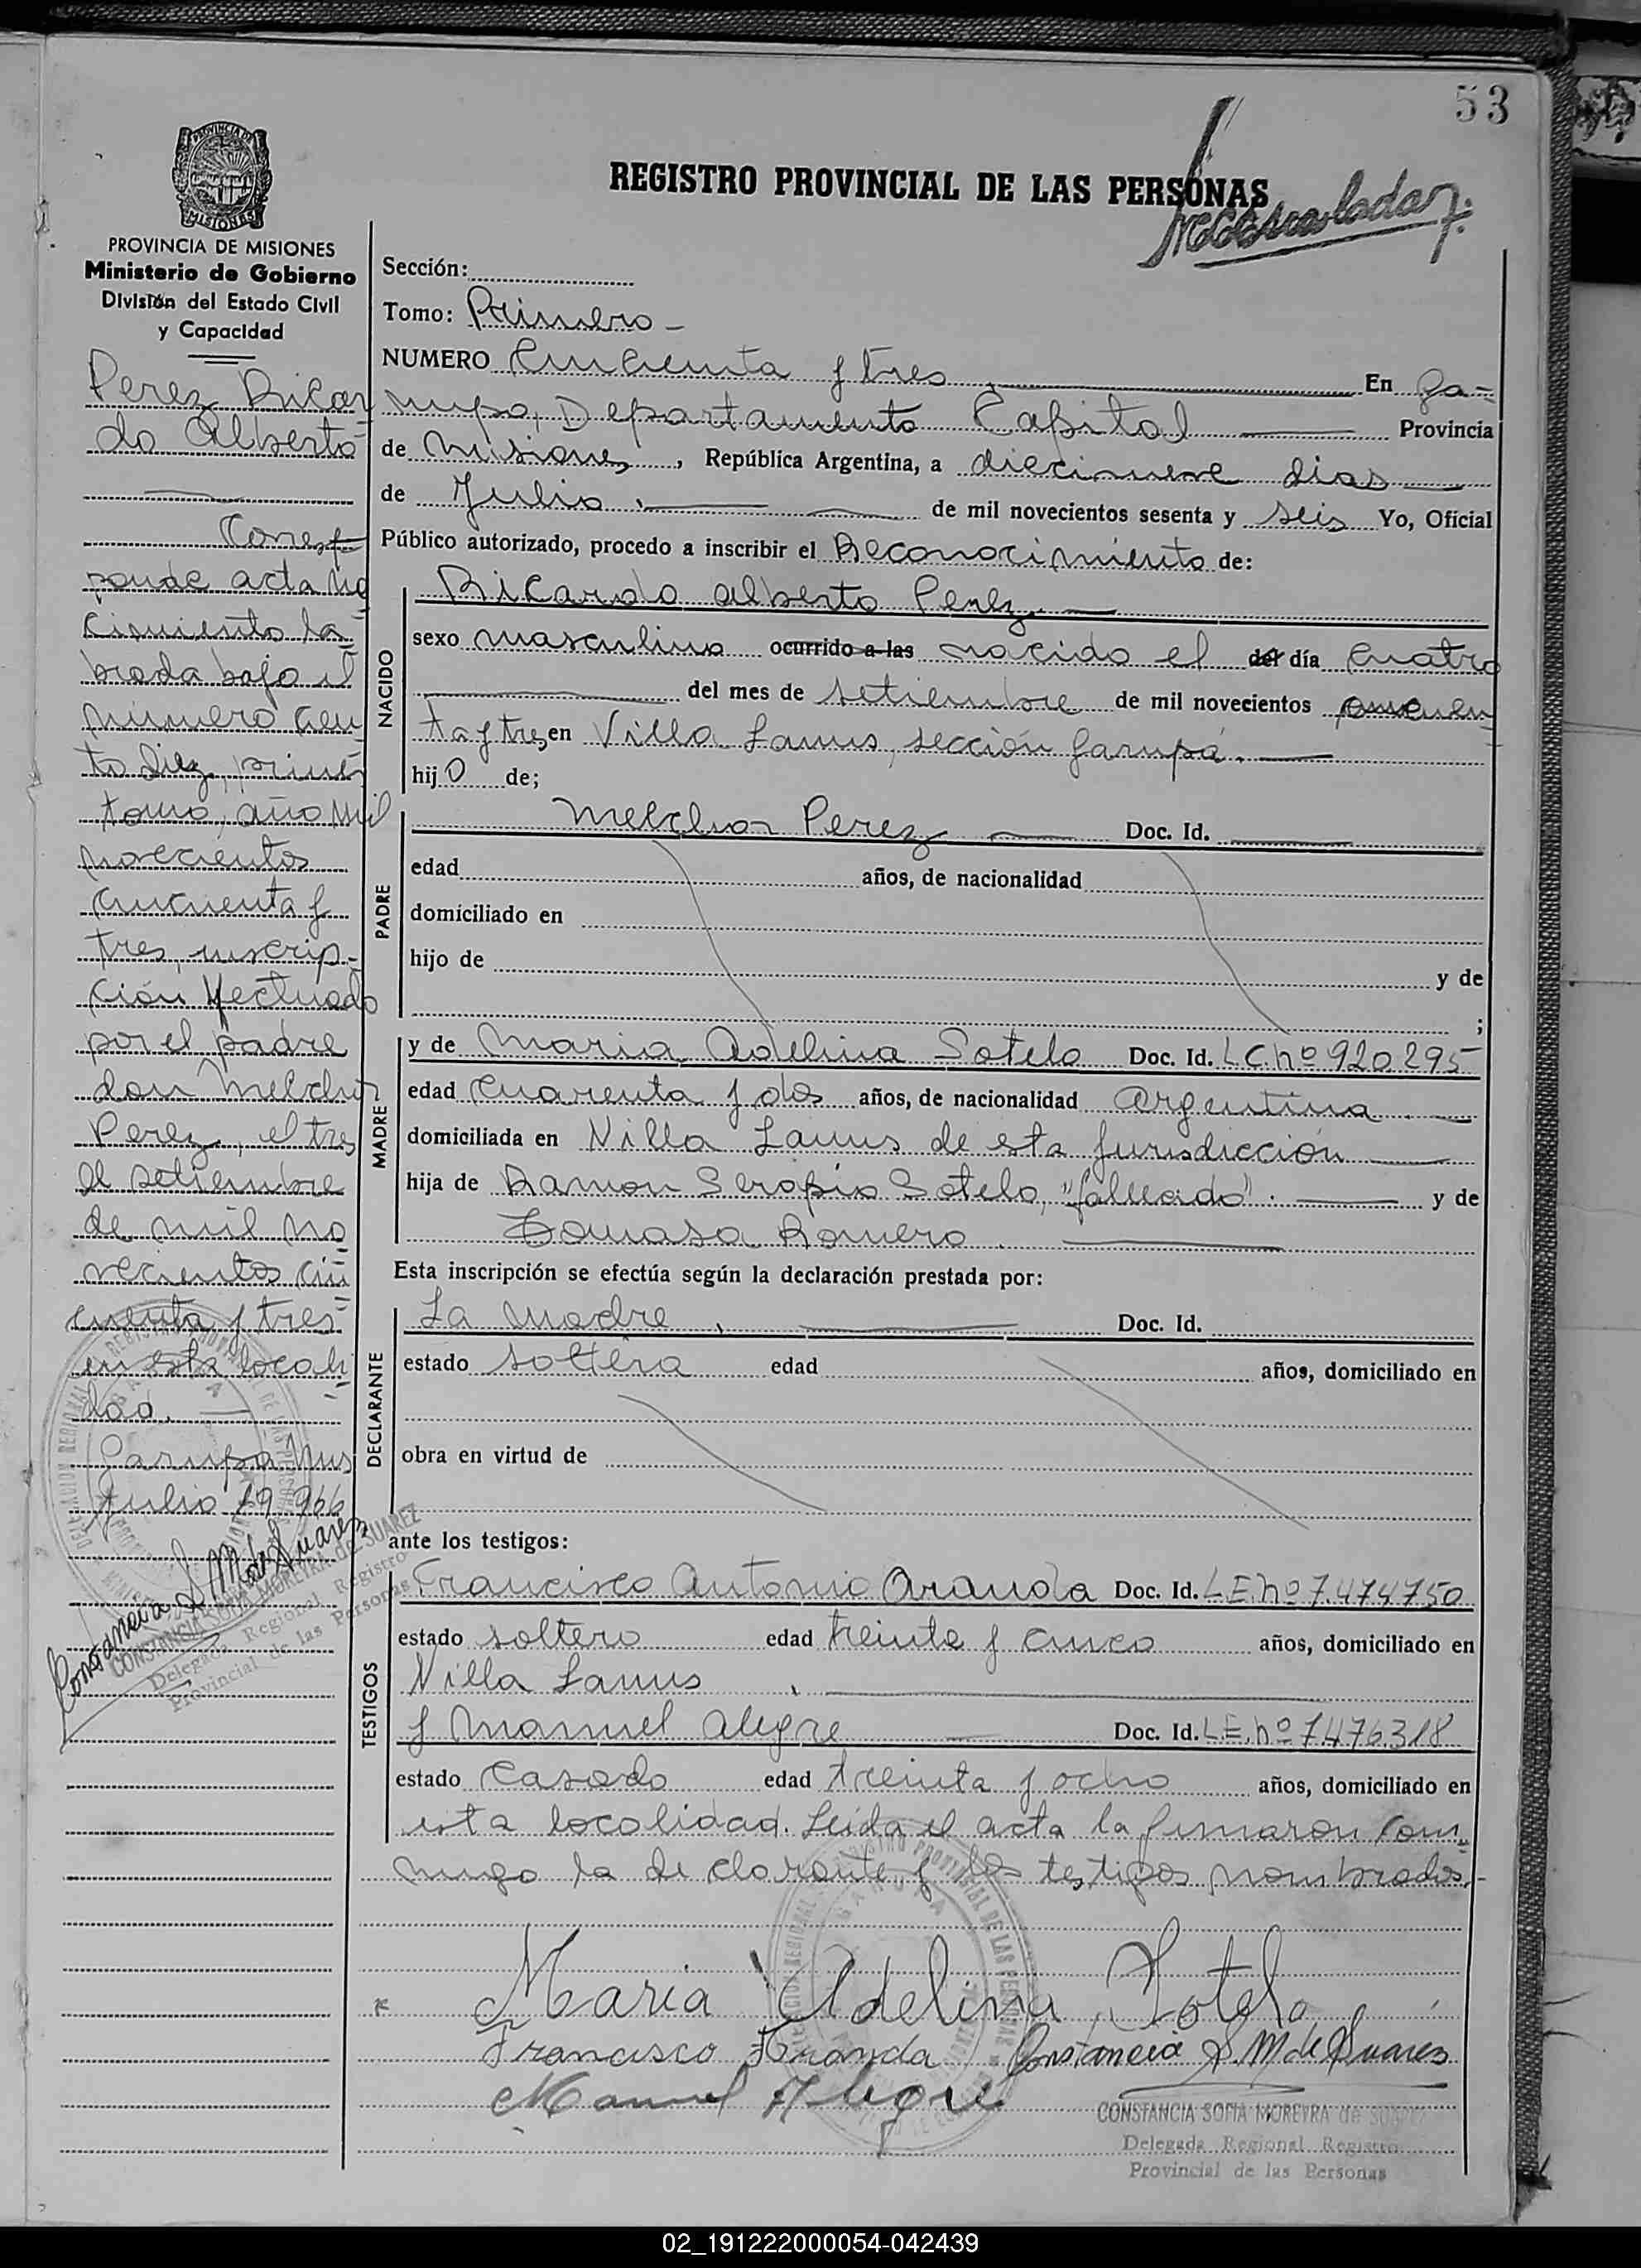 53
REGISTRO PROVINCIAL DE LAS PERSONAS
PROVINCIA DE MISIONES
PROVINCIA DE MISIONES
Ministerio de Gobierno
División del Estado Civil
y Capacidad
Perez Ricar
do Alberto
Corres-
ponde acta na
cimiento la-
brada bajo el
número cien
to diez, primer
tomo, año mil
novecientos
cincuenta y
tres, inscrip-
ción efectuado
por el padre
don Melchor
Perez, el tres
de setiembre
de mil no
vecientos cin
cuenta y tres
en esta locali
dad.
Garupa, Mns
Julio 19 966
Constancia S. M. de Suarez
CONSTANCIA SOFIA MOREYRA de SUAREZ
Delegada Regional Registro
Provincial de las Personas
Sección:
Tomo: Primero -
NUMERO Cincuenta y tres En Ga-
rupa, Departamento Capital Provincia
de Misiones, República Argentina, a diecinueve dias
de Julio, de mil novecientos sesenta y seis Yo, Oficial
Público autorizado, procedo a inscribir el Reconocimiento de:
NACIDO
Ricardo Alberto Perez.
sexo masculino ocurrido a las nacido el del día cuatro
del mes de setiembre de mil novecientos cincuen
ta y tres en Villa Lanus, sección Garupá.
hijo de;
PADRE
Melchor Perez Doc. Id.
edad años, de nacionalidad
domiciliado en
hijo de y de
;
MADRE
y de Maria Adelina Sotelo Doc. Id. L.C. nº 920.295
edad cuarenta y dos años, de nacionalidad Argentina.
domiciliada en Villa Lanus de esta jurisdicción
hija de Ramon Serapio Sotelo, "fallecido". y de
Tomasa Romero.
Esta inscripción se efectúa según la declaración prestada por:
DECLARANTE
La madre, Doc. Id.
estado soltera edad años, domiciliado en
obra en virtud de
ante los testigos:
TESTIGOS
Francisco Antonio Aranda Doc. Id. L.E. nº 7.474.750
estado soltero edad treinta y cinco años, domiciliado en
Villa Lanus,
y Manuel Alegre Doc. Id. L.E. nº 7.476.318
estado casado edad treinta y ocho años, domiciliado en
esta localidad. Leida el acta la firmaron con-
migo la declarante y los testigos nombrados.-
Maria Adelina Sotelo
Francisco Aranda Constancia S. M. de Suarez
Manuel Alegre
CONSTANCIA SOFIA MOREYRA de SUAREZ
Delegada Regional Registro
Provincial de las Personas
02_191222000054-042439